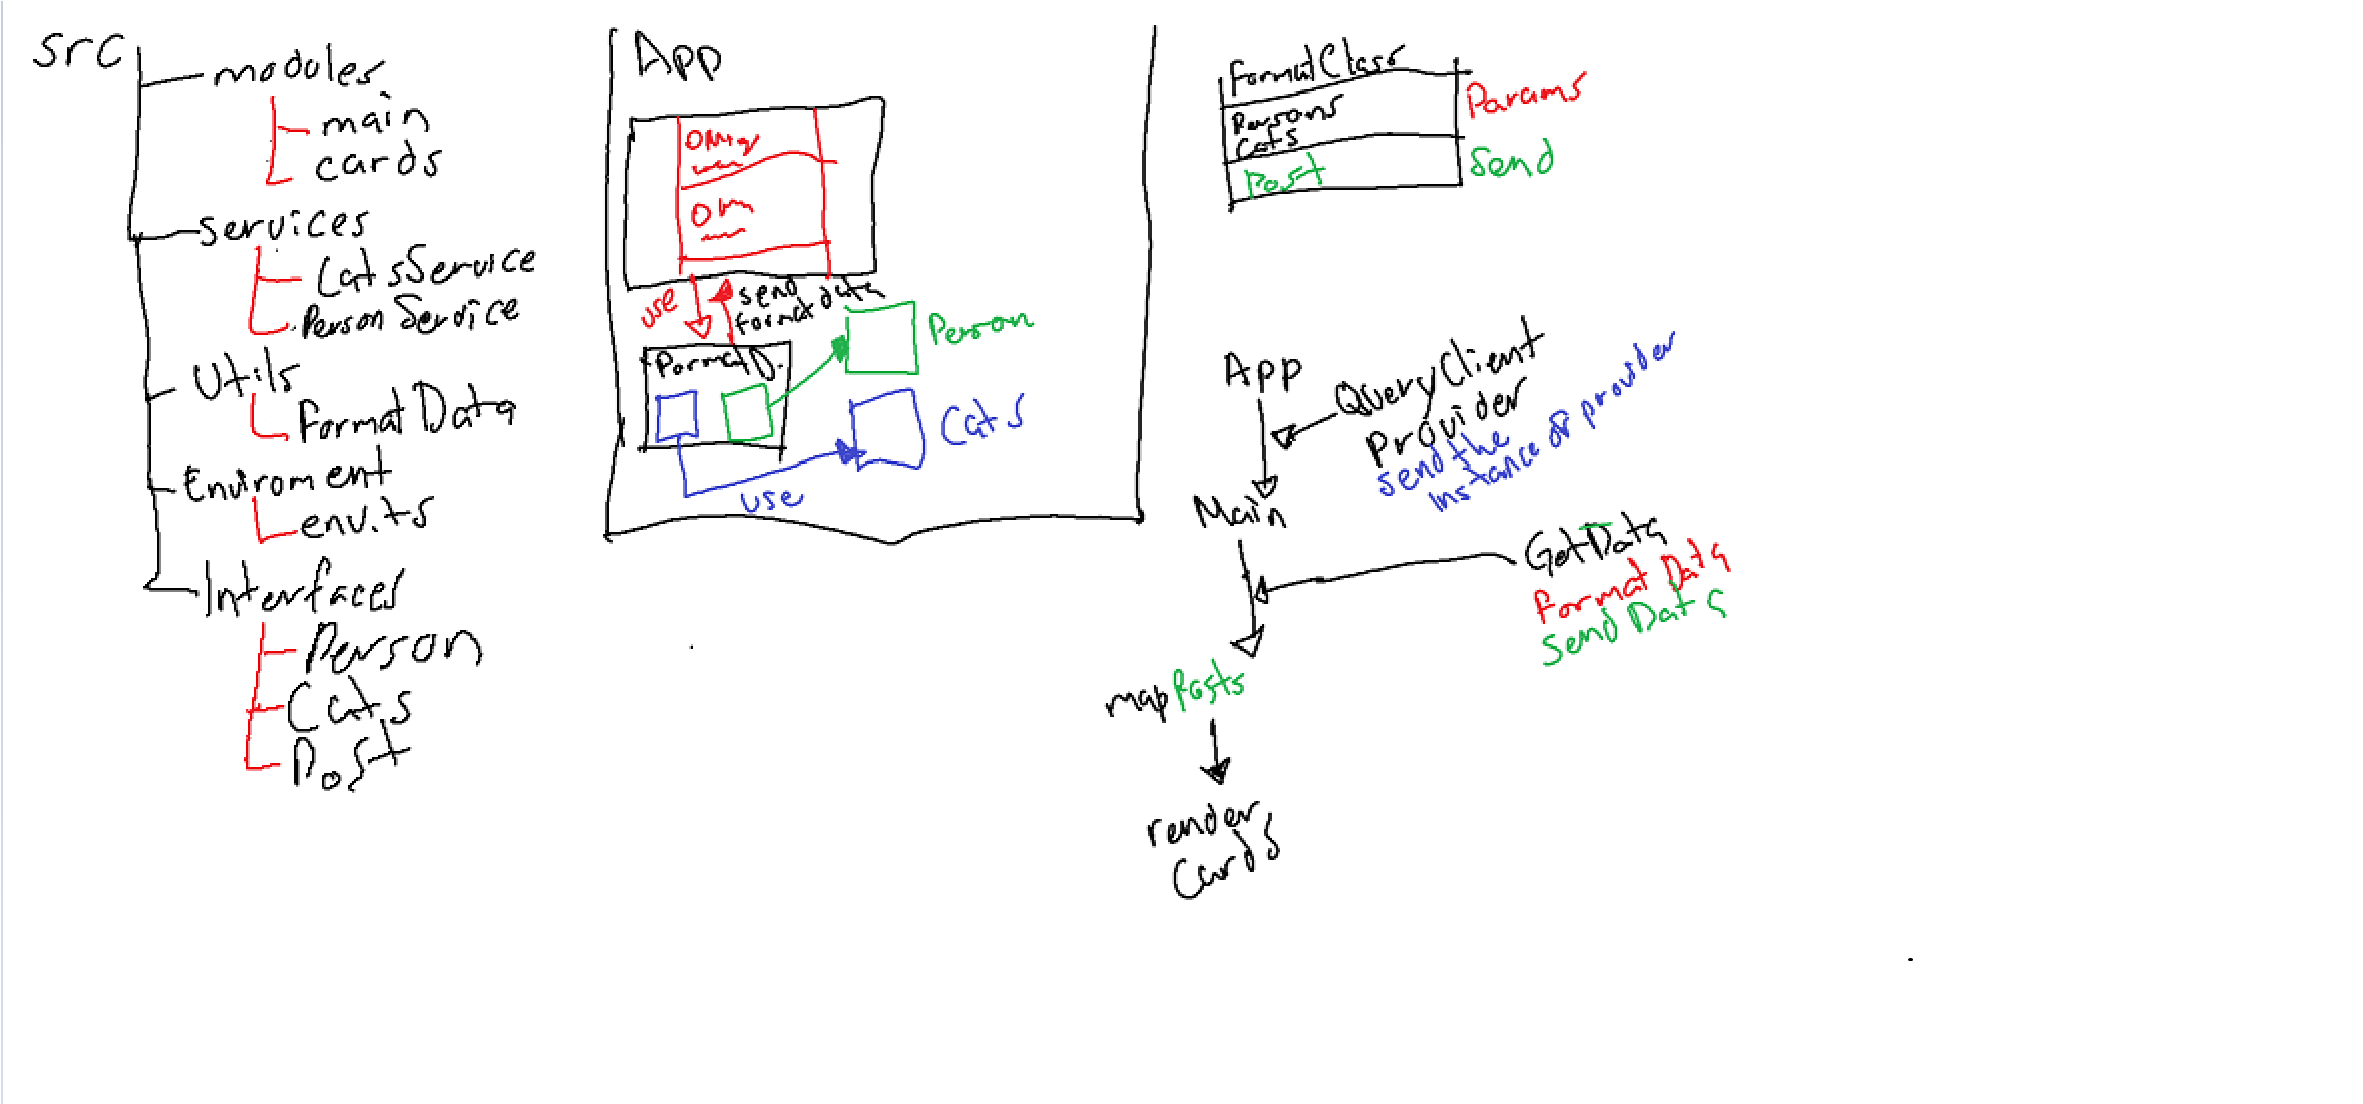 src
modules
main
cards
services
CatsService
Person Service
Utils
Format Data
Enviroment
env.ts
Interfaces
Person
Cats
Post
App
use
send
format data
Format D.
Person
Cats
use
FormatClass
Persons
Cats
Post
Params
Send
App
QueryClient
Provider
send the
instance of provider
Main
GetData
Format Data
Send Data
map Posts
render
Cards